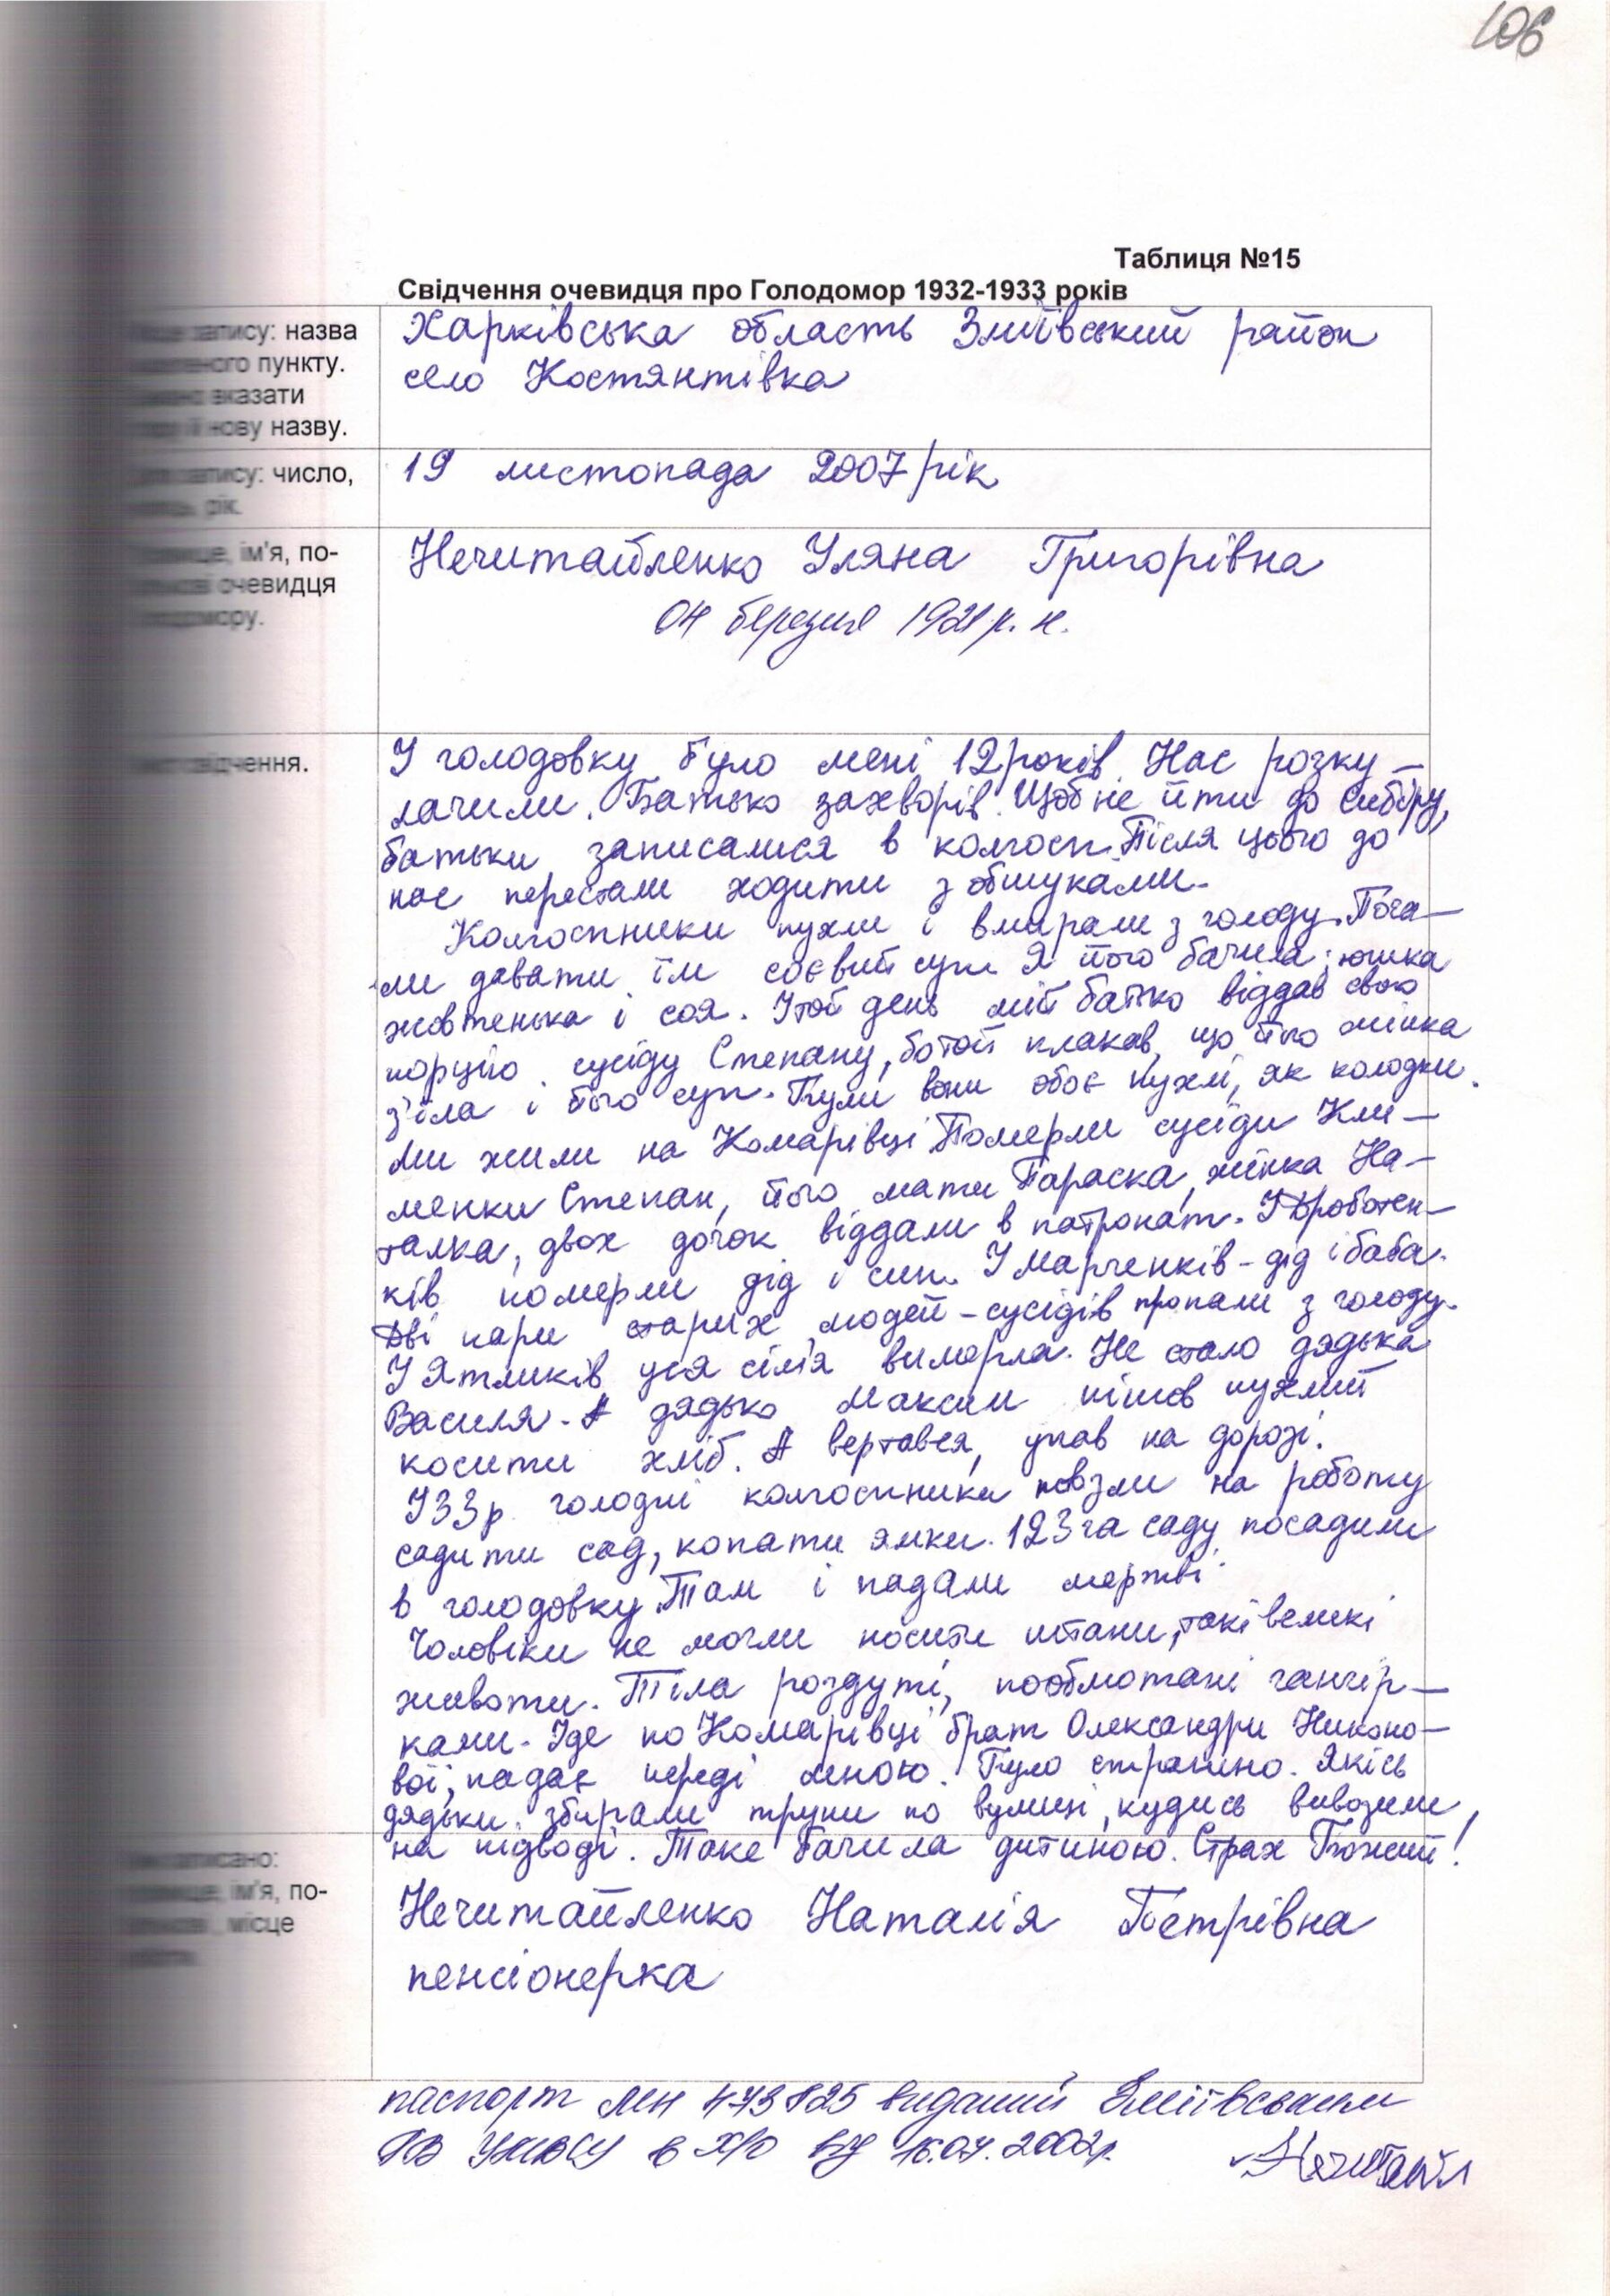 106
Таблиця №15
Свідчення очевидця про Голодомор 1932-1933 років
запису: назва
пункту.
вказати
нову назву.
Харківська область Зміївський район
село Костянтівка
запису: число,
рік.
19 листопада 2007 рік
ім'я, по-
очевидця
Нечитайленко Уляна Григорівна
04 березня 1921 р. н.
свідчення.
У голодовку було мені 12 років. Нас розку-
лачили. Батько захворів. Щоб не йти до Сибіру,
батьки записалися в колгосп. Після цього до
нас перестали ходити з обшуками.
Колгоспники пухли і вмирали з голоду. Поча-
ли давати їм соєвий суп. Я його бачила: юшка
жовтенька і соя. У той день мій батько віддав свою
порцію сусіду Степану, бо той плакав, що його жінка
з'їла і його суп. Були вони обоє пухлі, як колодки.
Ми жили на Комарівці. Померли сусіди Кли-
менки Степан, його мати Параска, жінка На-
талка, двох дочок віддали в патронат. У Дроботен-
ків померли дід і син. У Марченків - дід і баба.
Дві пари старих людей - сусідів пропали з голоду.
У Ятликів уся сім'я вимерла. Не стало дядька
Василя. А дядько Максим пішов пухлий
косити хліб. А вертався, упав на дорозі.
У 33 р. голодні колгоспники повзли на роботу
садити сад, копати ямки. 123 га саду посадили
в голодовку. Там і падали мертві.
Чоловіки не могли носити штани, такі великі
животи. Тіла роздуті, пообмотані ганчір-
ками. Іде по Комарівці брат Олександри Никоно-
вої, падає переді мною. Було страшно. Якісь
дядьки збирали трупи по вулиці, кудись вивозили
на підводі. Таке бачила дитиною. Страх Божий!
ім'я, по-
місце
Нечитайленко Наталія Петрівна
пенсіонерка
паспорт МН 473825 виданий Зміївським
РВ УМВСУ в Х/о від 16.07.2002р.
Нечитайл